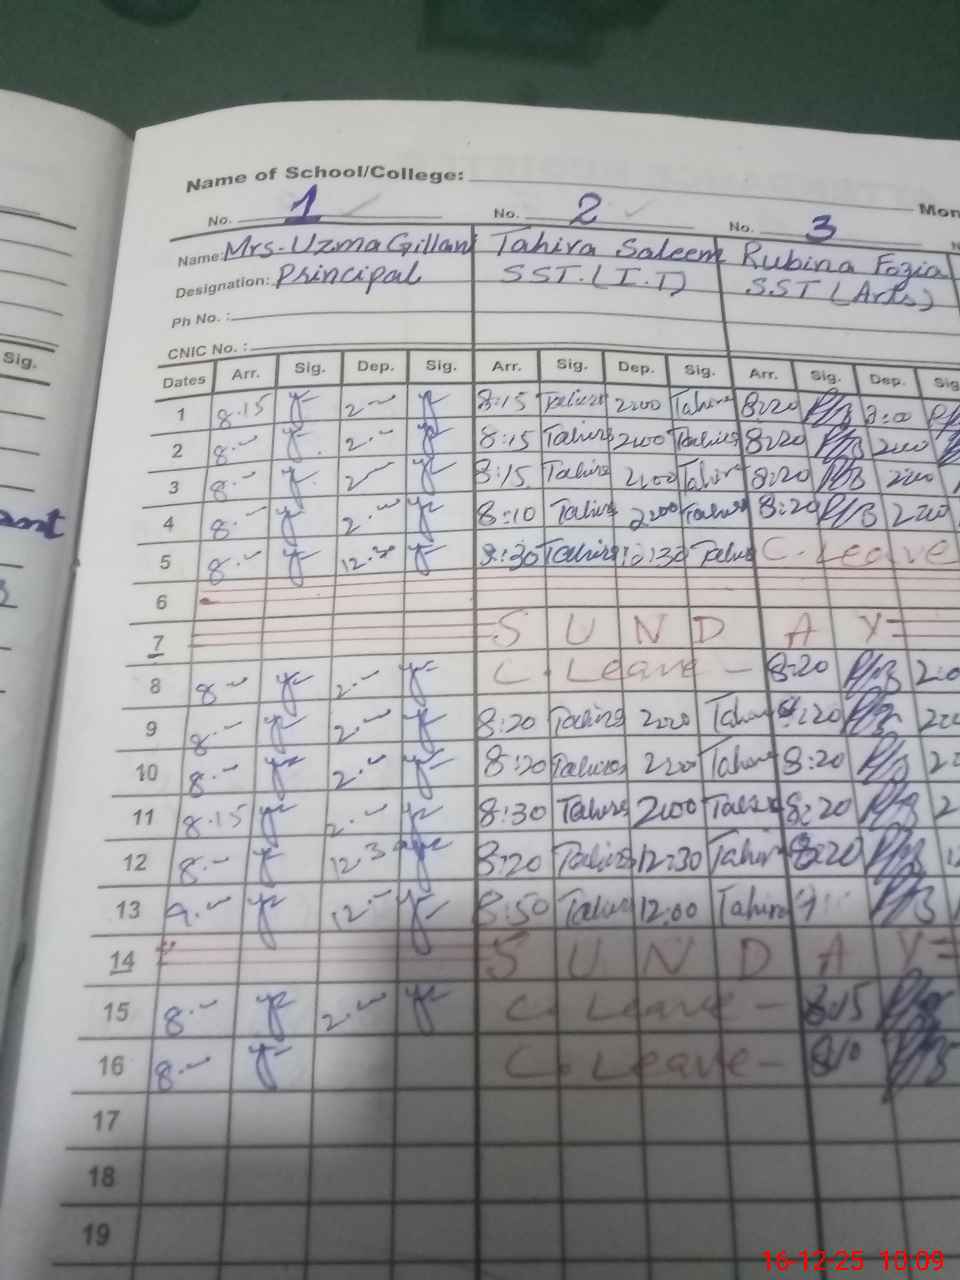 Name of School/College:
Mon
No. 1 No. 2 No. 3
Name: Mrs. Uzma Gillani Tahira Saleem Rubina Fozia
Designation: Principal SST. (I.T) SST (Arts)
Ph No. :
CNIC No. :
Sig.
Dates Arr. Sig. Dep. Sig. Arr. Sig. Dep. Sig. Arr. Sig. Dep. Sig
1 8.15 2 8:15 Tahira 2:00 Tahira 8:20 2:00
2 8 2 8:15 Tahira 2:00 Tahira 8:20 2:00
3 8 2 8:15 Tahira 2:00 Tahira 8:20 2:00
4 8 2 8:10 Tahira 2:00 Tahira 8:20 2:00
5 8 12.30 8:30 Tahira 12:30 Tahira C. Leave
6
7 S U N D A Y
8 8 2 C. Leave 8:20 2:0
9 8 2 8:20 Tahira 2:00 Tahira 8:20 2:00
10 8 2 8:20 Tahira 2:00 Tahira 8:20 2
11 8.15 2 8:30 Tahira 2:00 Tahira 8:20 2
12 8 12.3 8:20 Tahira 12:30 Tahira 8:20 12
13 9 12 8:50 Tahira 12:00 Tahira 9
14 S U N D A Y
15 8 2 C. Leave 8:15
16 8 C. Leave 8:10
17
18
19
16-12-25 10:09